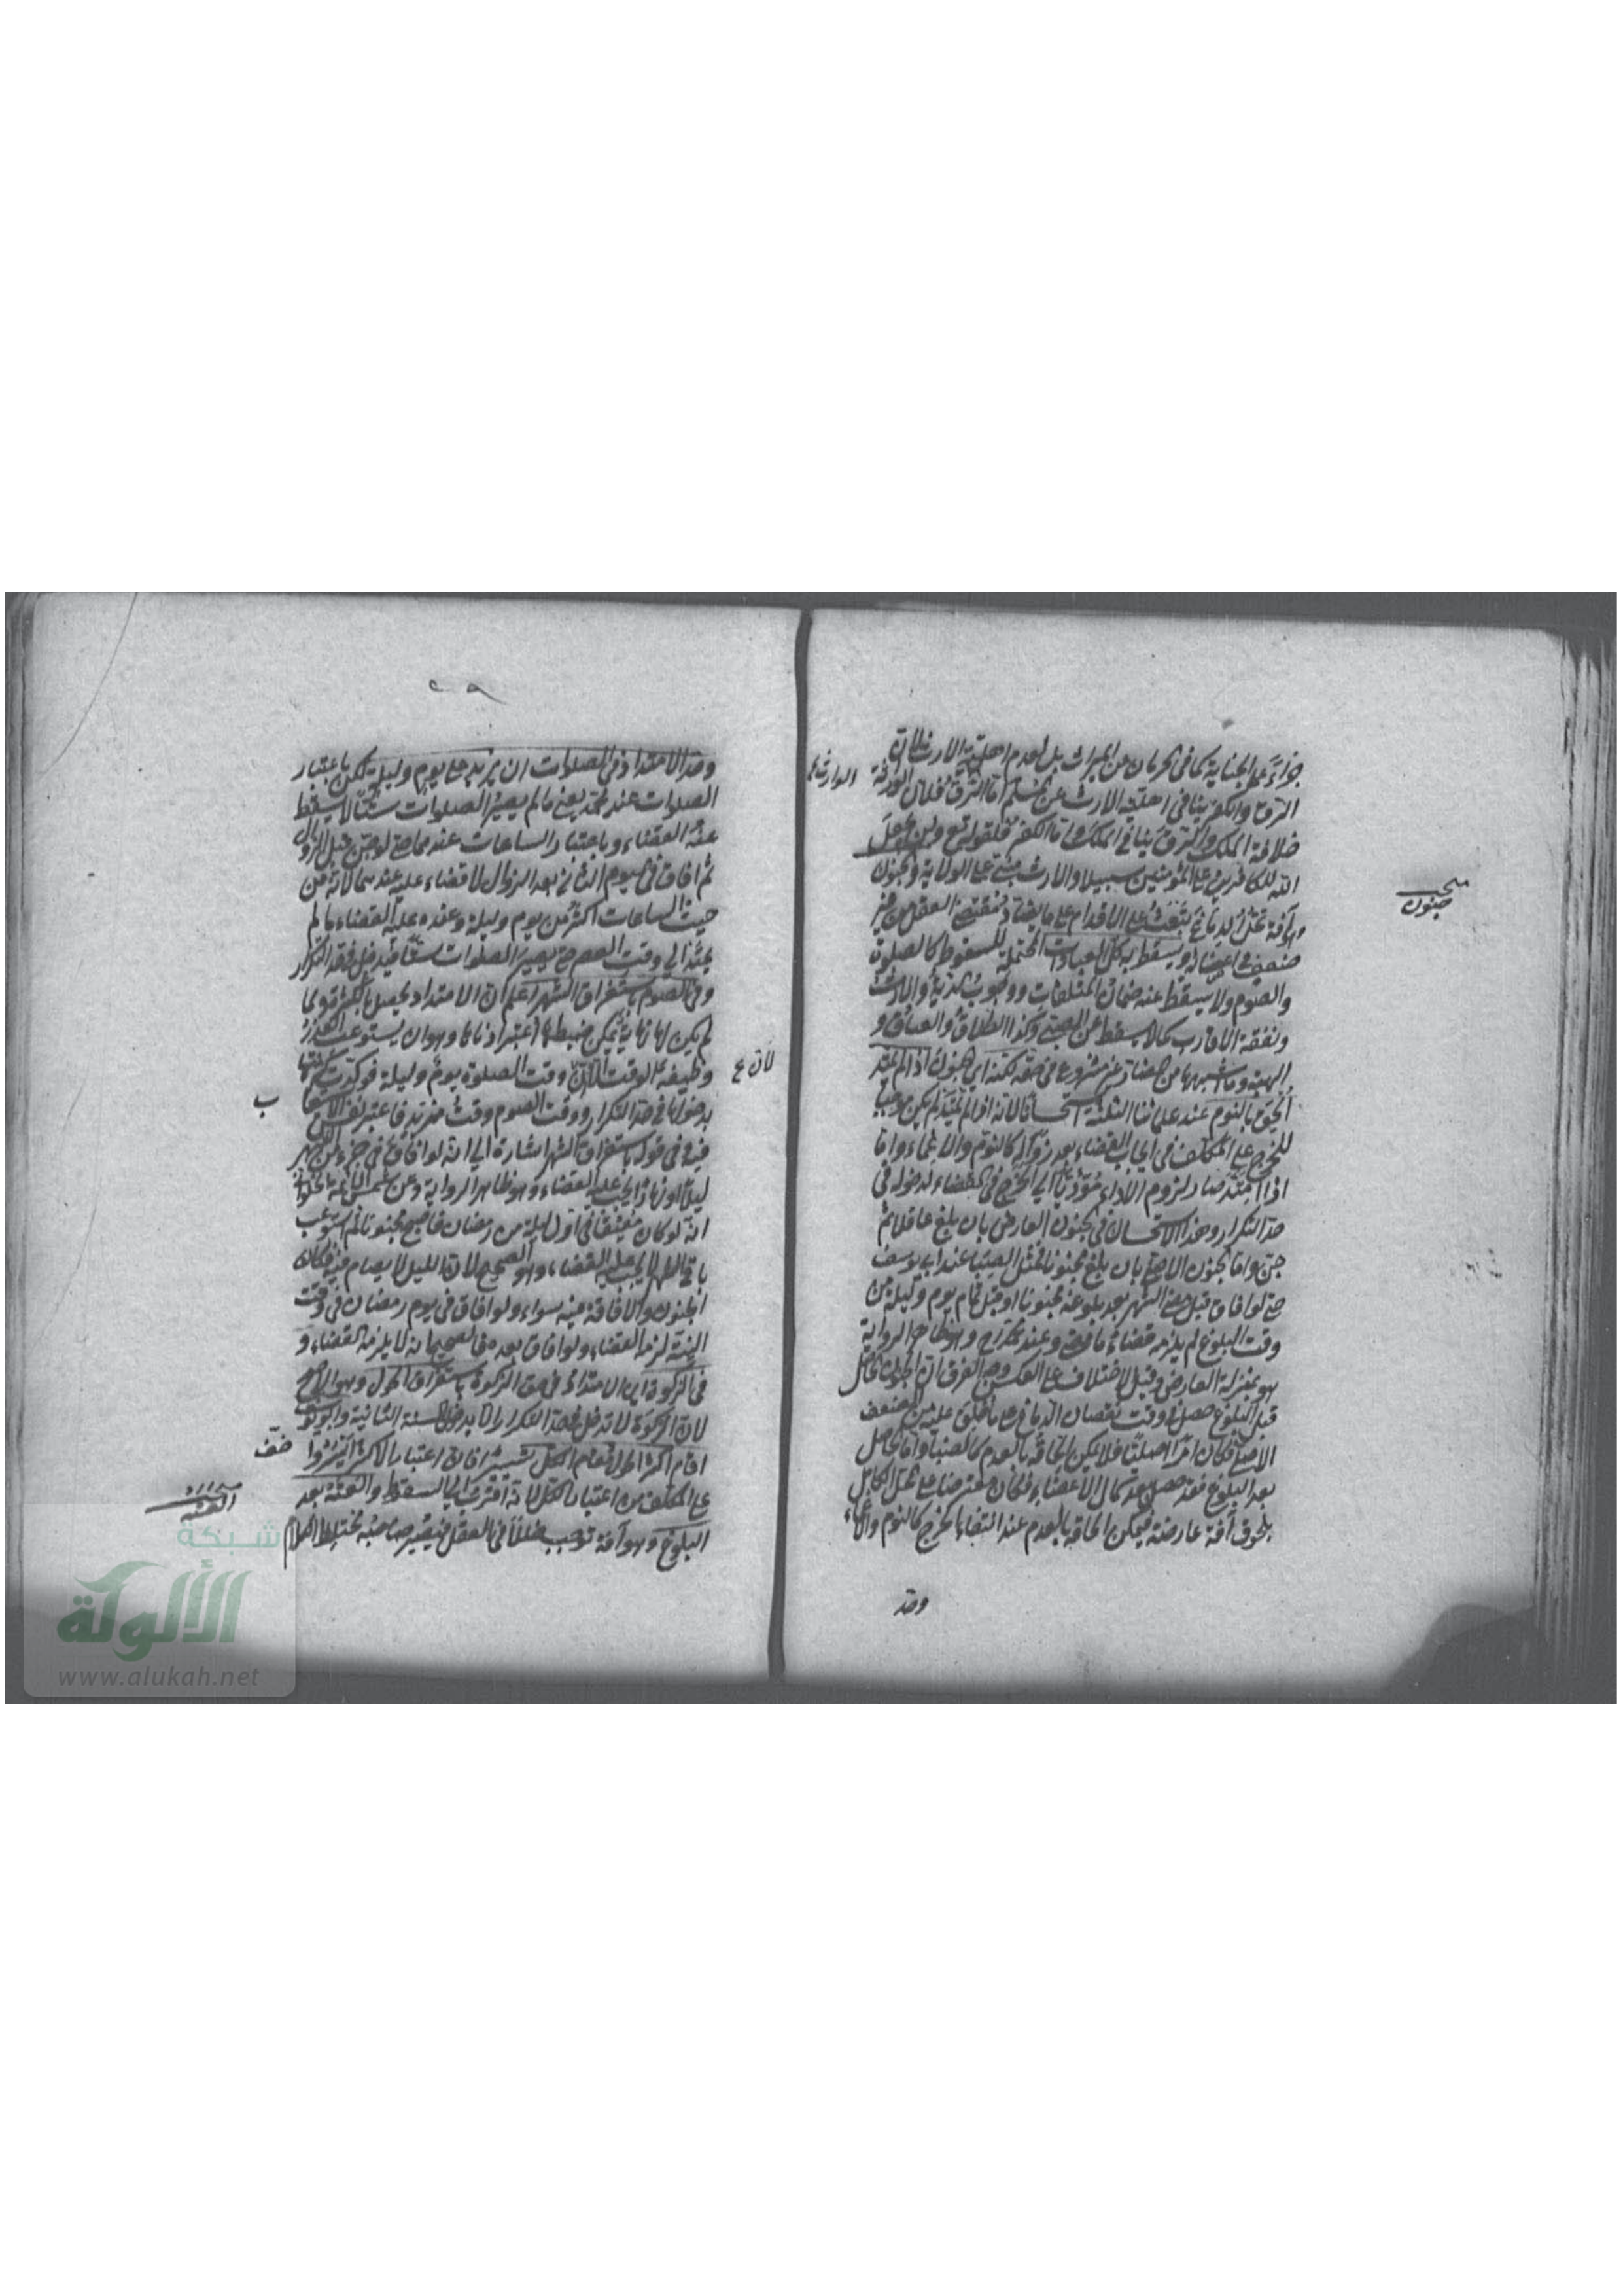 جزاءً على الجناية كما في الحرمان عن الميراث بل لعدم اهلية الارث لان
الرق والكفر ينافي اهلية الارث عن المسلم اما الرق فلان الوراثة
خلافة الملك والرق ينافي الملك واما الكفر فلقوله تع ولن يجعل
الله للكافرين على المؤمنين سبيلا والارث مبني على الولاية والجنون
وهو آفة تحل الدماغ تبعث على الاقدام على ما يضاد مقتضى العقل من غير
ضعف في اعضائه ويسقط به كل العبادات المحتملة للسقوط كالصلوة
والصوم ولا يسقط عنه ضمان المتلفات ووجوب الدية والارش
ونفقة الاقارب كما لا يسقط عن الصبي وكذا الطلاق والعتاق و
الهبة وما اشبهها من المضار غير مشروع في حقه لكنه اي الجنون اذا لم يمتد
الحق بالنوم عند علمائنا الثلثة استحسانا لانه اذا لم يمتد لم يكن موجبا
للحرج على المكلف في ايجاب القضاء بعد زواله كالنوم والاغماء واما
اذا امتد صار لزوم الاداء مؤديا الى الحرج في القضاء لدخوله في
حد التكرار وهذا الاستحسان في الجنون العارض بان بلغ عاقلا ثم
جن واما الجنون الاصلي بان بلغ مجنونا فمثل الصبا عند ابي يوسف
حتى لو افاق قبل مضي الشهر بعد بلوغه مجنونا او قبل تمام يوم وليلة من
وقت البلوغ لم يلزمه قضاء ما مضى وعند محمد رح وهو ظاهر الرواية
هو بمنزلة العارض وقيل الاختلاف على العكس وجه الفرق ان الجنون الحاصل
قبل البلوغ حصل في وقت نقصان الدماغ على ما خلق عليه من الضعف
الاصلي فكان امرا اصليا فلا يمكن الحاقه بالعدم كالصبا واما الحاصل
بعد البلوغ فقد حصل بعد كمال الاعضاء فكان معترضا على المحل الكامل
بلحوق آفة عارضة فيمكن الحاقه بالعدم عند انتفاء الحرج كالنوم والاغماء
وحد
الوارث
جنون
وحد الامتداد في الصلوات ان يزيد على يوم وليلة لكن باعتبار
الصلوات عند محمد يعني ما لم يصير الصلوات ستا لا يسقط
عنه القضاء وباعتبار الساعات عندهما حتى لو جن قبل الزوال
ثم افاق في اليوم الثاني بعد الزوال لا قضاء عليه عندهما لانه من
حيث الساعات اكثر من يوم وليلة وعنده عليه القضاء ما لم
يمتد الى وقت العصر حتى يصير الصلوات ستا فيدخل في حد التكرار
وفي الصوم باستغراق الشهر اعلم ان الامتداد يحصل بالكثرة ولما
لم يكن لها نهاية يمكن ضبطها اعتبر ادناها وهو ان يستوعب العذر
وظيفة الوقت الا ان وقت الصلوة يوم وليلة فوكدت كثرتها
بدخولها في حد التكرار ووقت الصوم وقت مديد فاعتبر نفس الاستيعاب
فيه وفي قوله باستغراق الشهر اشارة الى انه لو افاق في جزء من الشهر
ليلا او نهارا يجب عليه القضاء وهو ظاهر الرواية وعن شمس الائمة الحلواني
انه لو كان مفيقا في اول ليلة من رمضان فاصبح مجنونا ثم استوعب
باقي الشهر لا يجب عليه القضاء وهو الصحيح لان الليل لا يصام فيه فكان
الجنون والافاقة فيه سواء ولو افاق في يوم رمضان في وقت
النية لزمه القضاء ولو افاق بعده فالصحيح انه لا يلزمه القضاء و
في الزكوة اي الامتداد في حق الزكوة باستغراق الحول وهو الاصح
لان الزكوة لا تدخل في حد التكرار الا بدخول السنة الثانية وابو يوسف
اقام اكثر الحول مقام الكل تيسيرا فان اعتبار الاكثر ايسر
على المكلف من اعتبار الكل لانه اقرب الى السقوط والعته بعد
البلوغ وهو آفة توجب خللا في العقل فيصير صاحبه مختلط الكلام
لان
ب
العته
شبكة
الألوكة
www.alukah.net